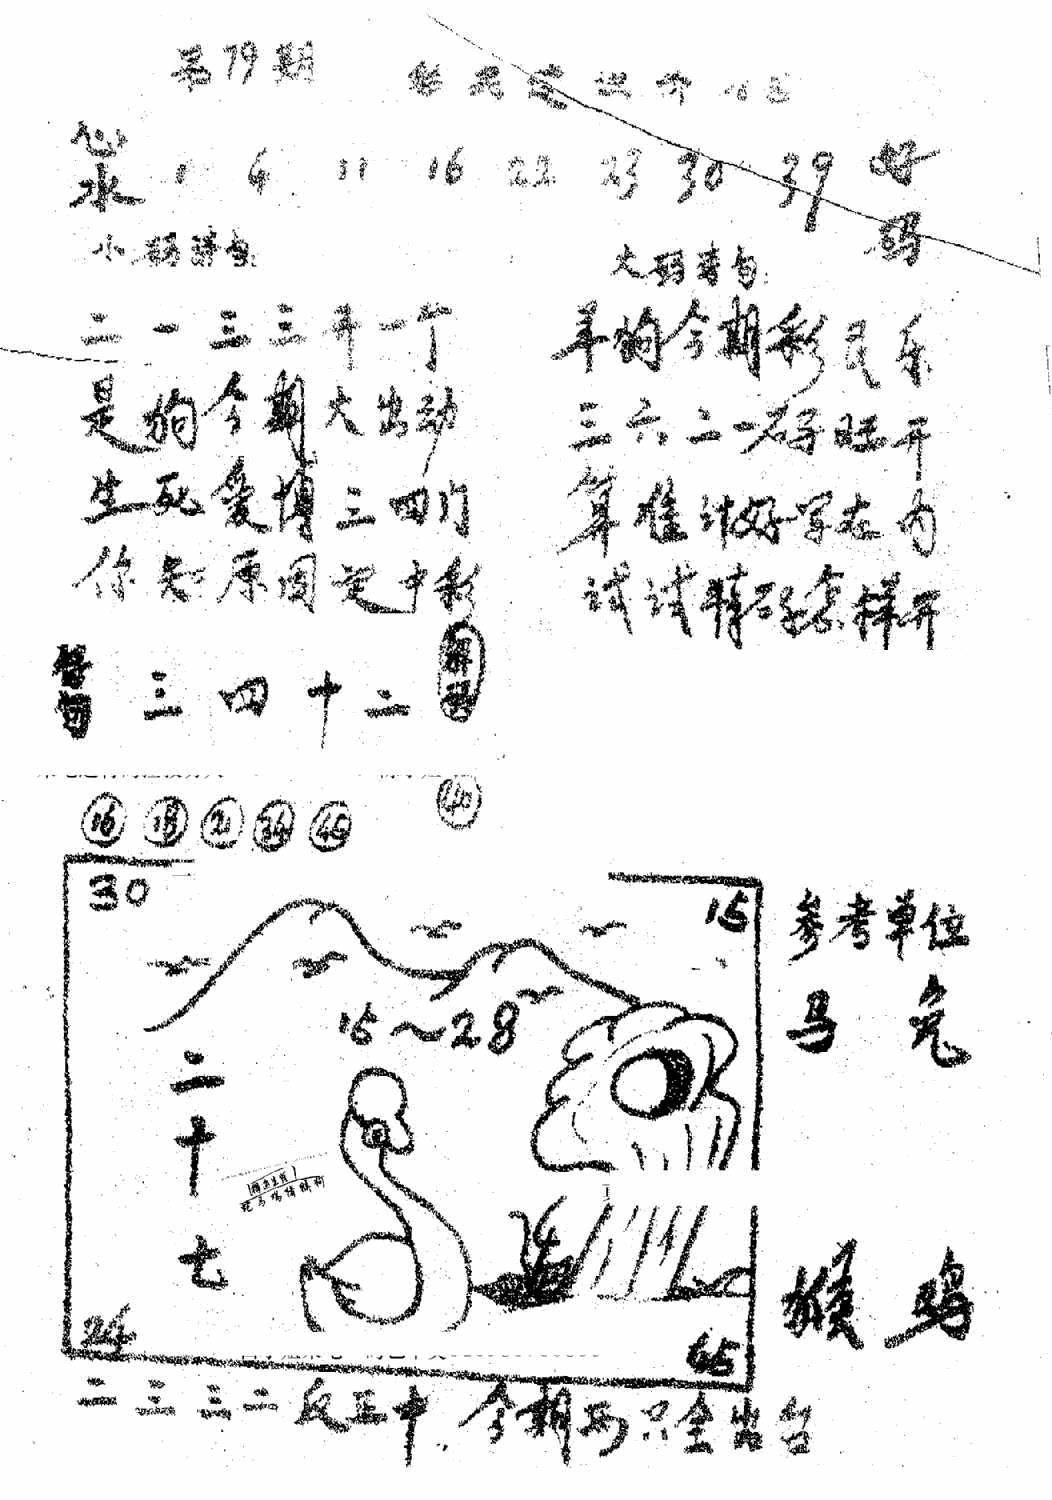 第79期
心水 1 4 11 16 22 23 30 39 好码
小码诗句:
大码诗句:
二一三三开一个
是狗今期大出动
生死爱博三四门
你知原因定中彩
羊狗今期彩民乐
三六二一好旺开
算准计好字在内
试试精 怎样开
三四十二
16 18 21 34 45
40
30
15
15~28
二十七
24
45
参考单位
马 兔
猴 鸡
二三三二反正中,今期两只全出台